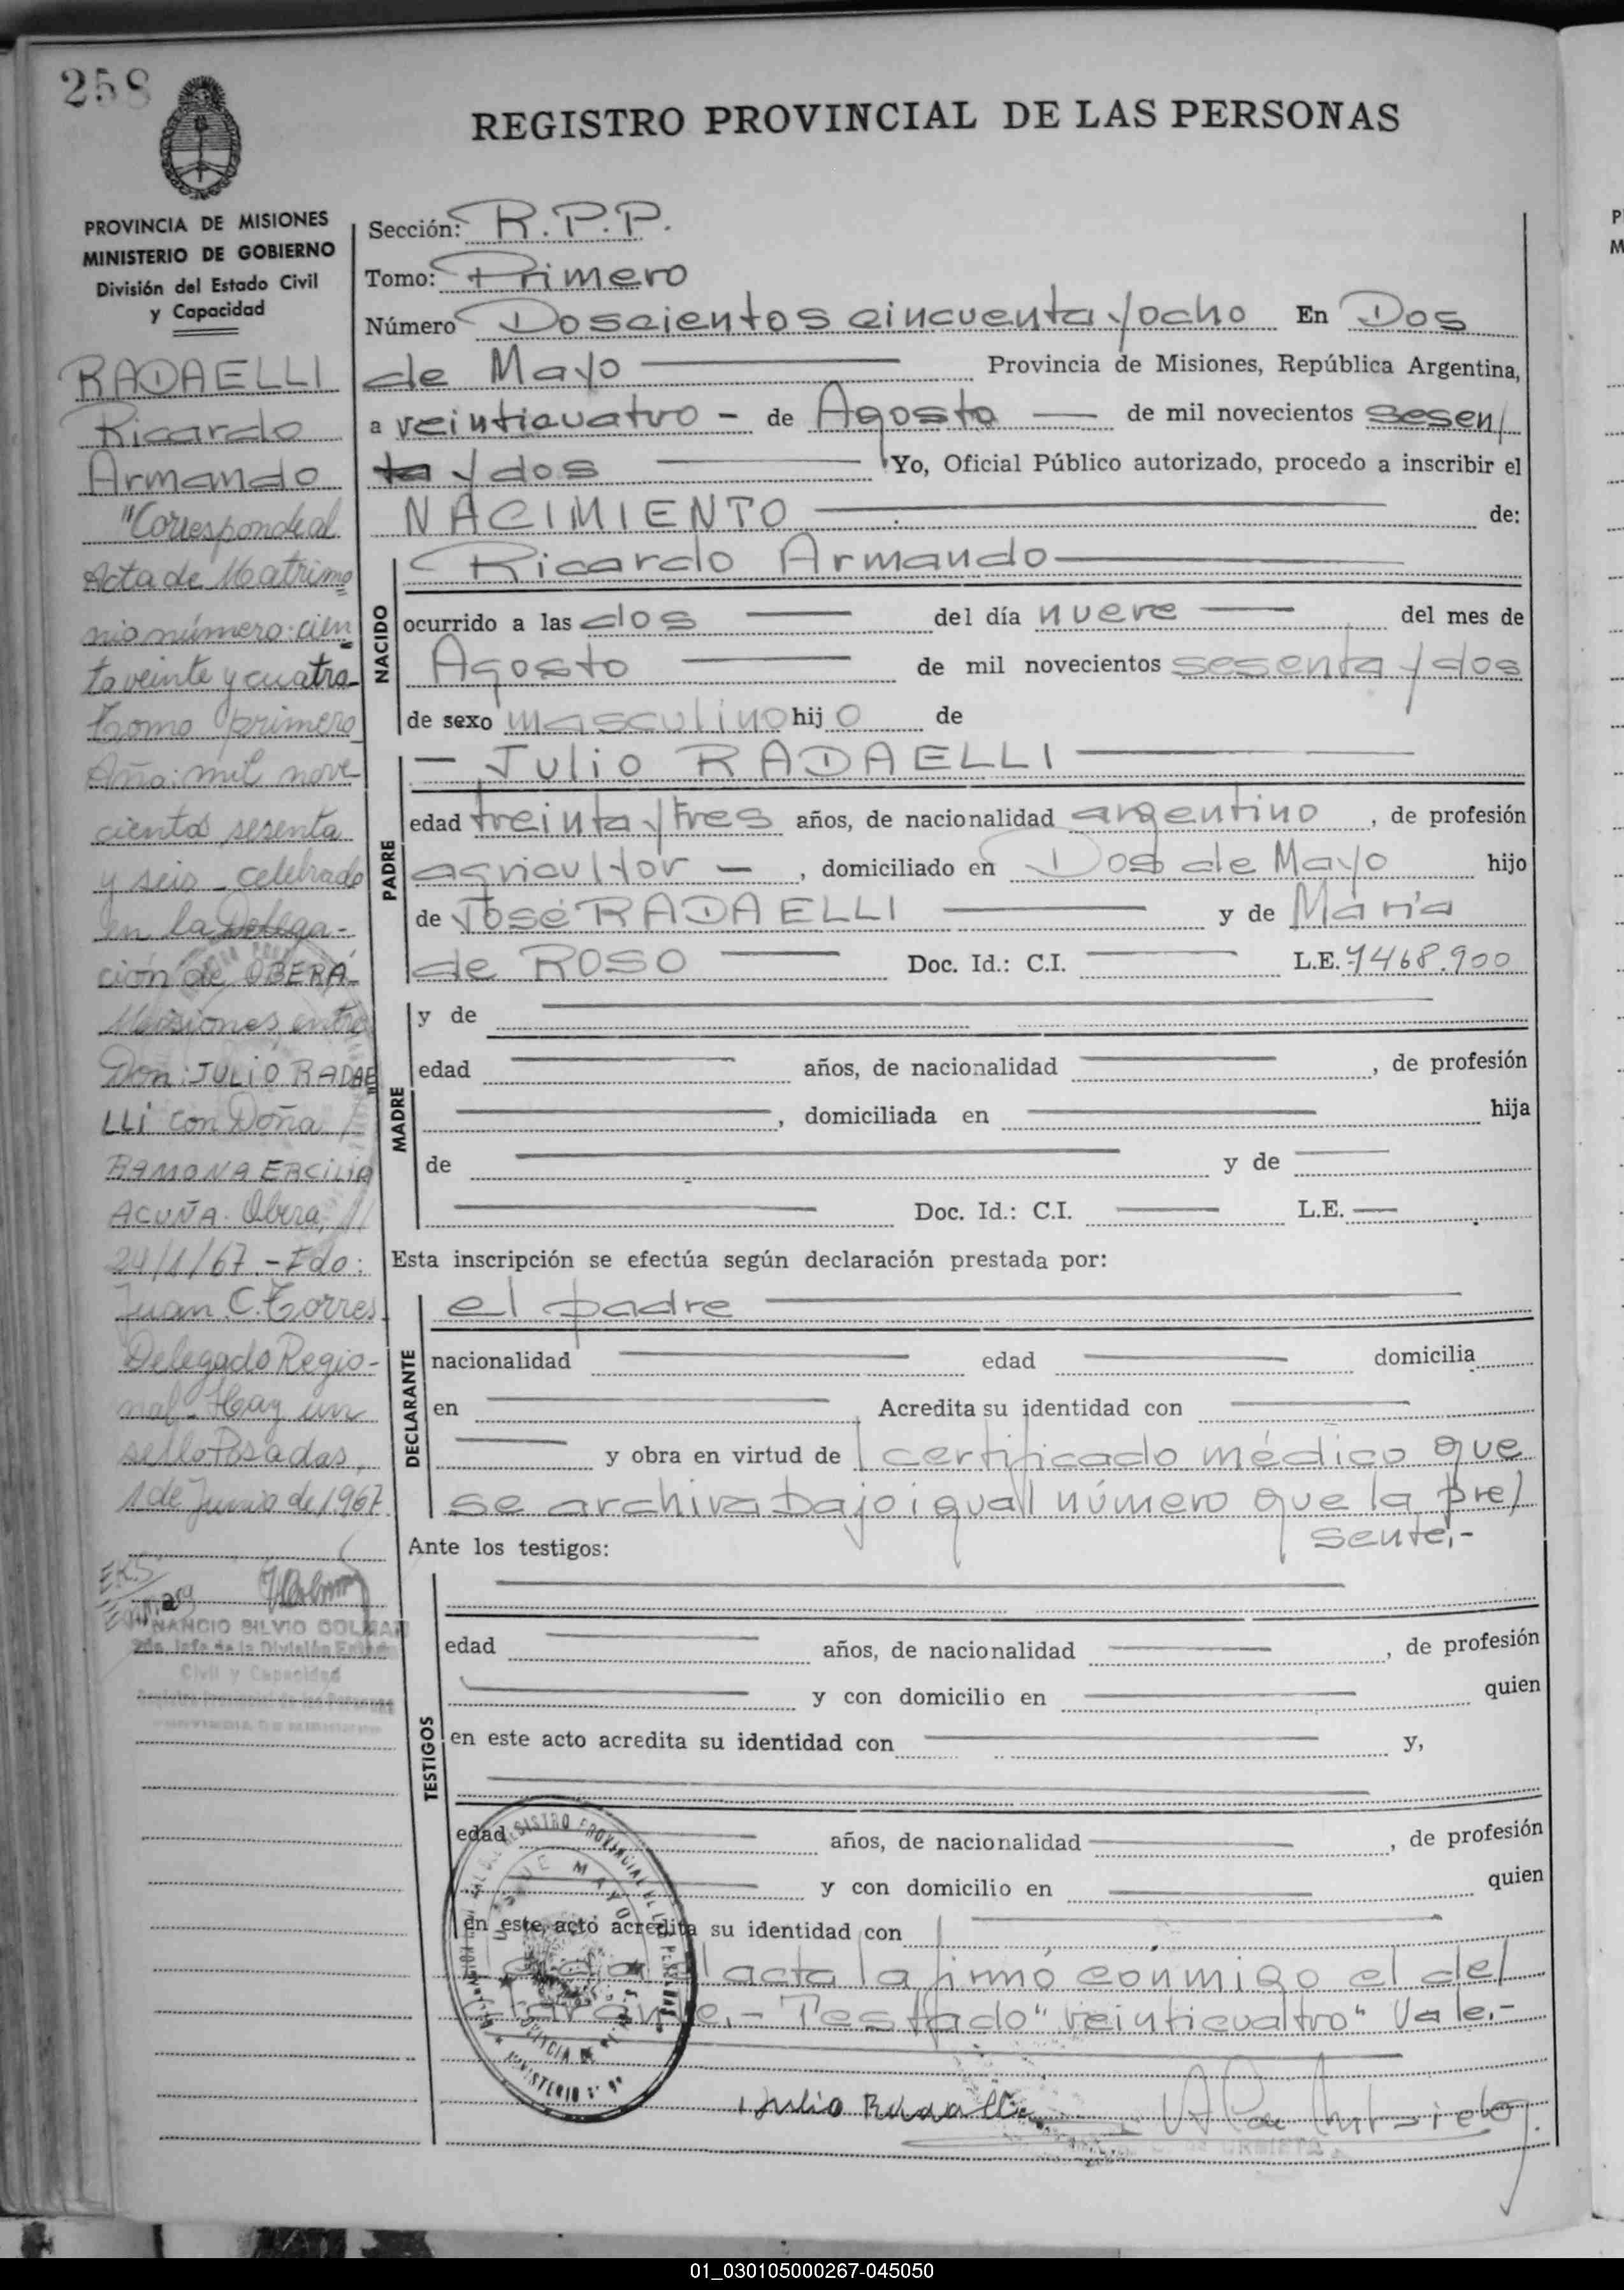 258
REGISTRO PROVINCIAL DE LAS PERSONAS
PROVINCIA DE MISIONES
MINISTERIO DE GOBIERNO
División del Estado Civil
y Capacidad
RADAELLI
Ricardo
Armando
"Corresponde al
Acta de Matrimo
nio número: cien
to veinte y cuatro
Tomo primero
Año: mil nove
cientos sesenta
y seis - celebrado
en la Delega-
ción de OBERÁ-
Misiones, entre
Don: JULIO RADAE
LLI con Doña
RAMONA ERCILIA
ACUÑA. Obera,
24/1/67.- Fdo:
Juan C. Torres
Delegado Regio-
nal - Hay un
sello Posadas,
1 de Junio de 1967
VENANCIO SILVIO COLMAN
2do. Jefe de la División Estado
Civil y Capacidad
Registro Provincial de las Personas
PROVINCIA DE MISIONES
Sección: R.P.P.
Tomo: Primero
Número Doscientos cincuenta y ocho En Dos
de Mayo Provincia de Misiones, República Argentina,
a veinticuatro - de Agosto de mil novecientos sesen/
ta y dos Yo, Oficial Público autorizado, procedo a inscribir el
NACIMIENTO de:
NACIDO
Ricardo Armando
ocurrido a las dos del día nueve del mes de
Agosto de mil novecientos sesenta y dos
de sexo masculino hijo de
PADRE
- Julio RADAELLI
edad treinta y tres años, de nacionalidad argentino, de profesión
agricultor -, domiciliado en Dos de Mayo hijo
de José RADAELLI y de María
de ROSO Doc. Id.: C.I. L.E. 7468.900
MADRE
y de
edad años, de nacionalidad , de profesión
, domiciliada en hija
de y de
Doc. Id.: C.I. L.E.
Esta inscripción se efectúa según declaración prestada por:
DECLARANTE
el padre
nacionalidad edad domicilia
en Acredita su identidad con
y obra en virtud de certificado médico que
se archiva bajo igual número que la pre/
sente.-
Ante los testigos:
TESTIGOS
edad años, de nacionalidad , de profesión
y con domicilio en quien
en este acto acredita su identidad con y,
edad años, de nacionalidad , de profesión
y con domicilio en quien
en este acto acredita su identidad con
acta la firmó conmigo el de/
clarante.- Testado "veinticuatro" Vale.-
Julio Radaelli
01_030105000267-045050